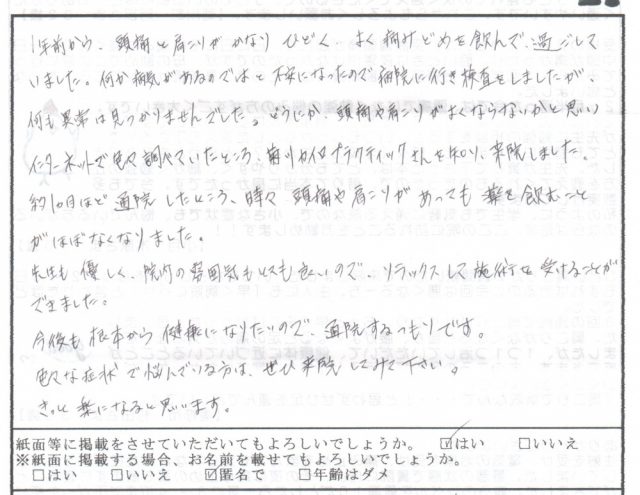 1年前から、頭痛と肩こりがかなりひどく、よく痛みどめを飲んで、過ごして
いました。何か病気があるのではと不安になったので病院に行き検査をしましたが、
何も異常は見つかりませんでした。どうにか、頭痛や肩こりがよくならないかと思い
インターネットで色々調べていたところ、カイロプラクティックさんを知り、来院しました。
約1ヵ月ほど通院したところ、時々頭痛や肩こりがあっても薬を飲むこと
がほぼなくなりました。
先生も優しく、院内の雰囲気もとても良いので、リラックスして施術を受けることが
できました。
今後も根本から健康になりたいので、通院するつもりです。
色々な症状で悩んでいる方は、ぜひ来院してみて下さい。
きっと楽になると思います。
紙面等に掲載をさせていただいてもよろしいでしょうか。 ☑はい □いいえ
※紙面に掲載する場合、お名前を載せてもよろしいでしょうか。
□はい □いいえ ☑匿名で □年齢はダメ